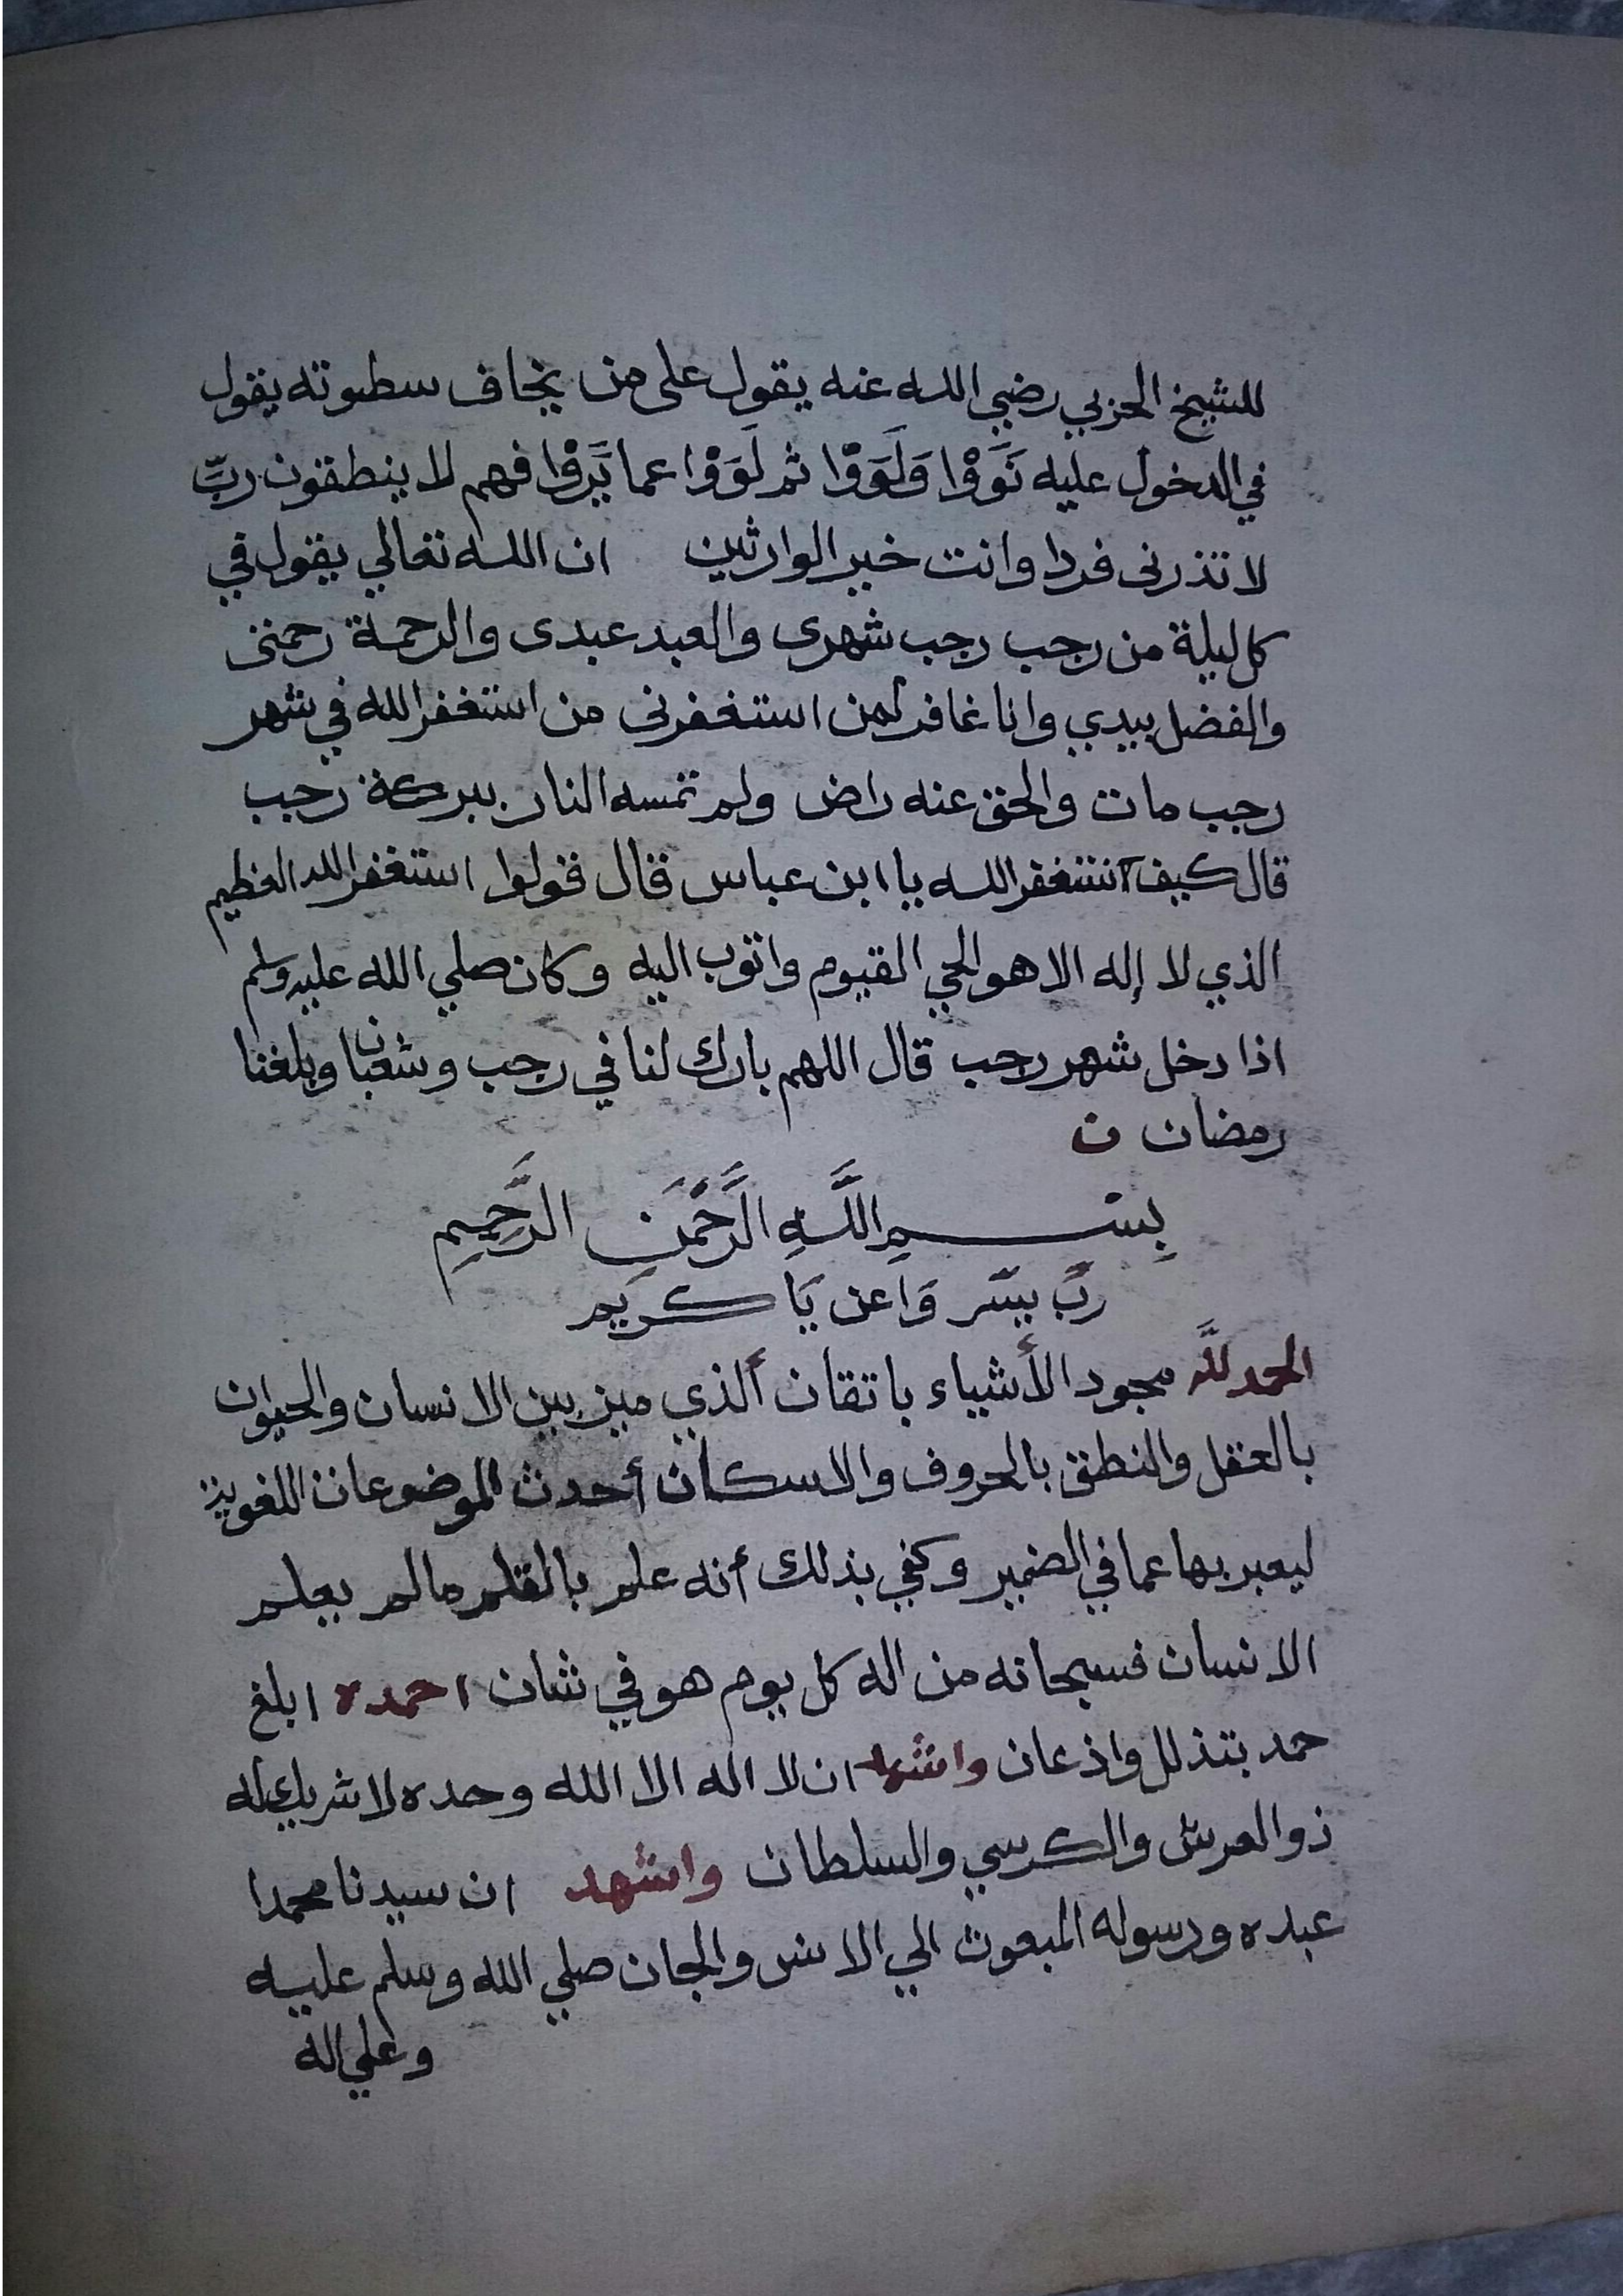 للشيخ الحزبي رضي الله عنه يقول على من يخاف سطوته يقول
في الدخول عليه نَوَوْا وَلَوَوْا ثم لَوَوْا عما نَوَوْا فهم لا ينطقون ربِّ
لا تذرنى فردا وانت خير الوارثين ان الله تعالي يقول في
كل ليلة من رجب رجب شهرى والعبد عبدى والرحمة رحمتى
والفضل بيدي وانا غافر لمن استغفرنى من استغفر الله في شهر
رجب مات والحق عنه راض ولم تمسه النار ببركة رجب
قال كيف نستغفر الله يا ابن عباس قال قولوا استغفر الله العظيم
الذي لا إله الا هو الحي القيوم واتوب اليه وكان صلي الله عليه وسلم
اذا دخل شهر رجب قال اللهم بارك لنا في رجب وشعبان وبلغنا
رمضان ن
بِسْمِ اللَّهِ الرَّحْمَنِ الرَّحِيمِ
ربِّ يسّر وَاعن يَا كريم
الحمد للَّه مجود الأشياء باتقان ألذي ميز بين الانسان والحيوان
بالعقل والنطق بالحروف والاسكان أحدث الموضوعات اللغوية
ليعبر بها عما في الضمير وكفي بذلك أنه علم بالقلم مالم يعلم
الانسان فسبحانه من اله كل يوم هو في شان احمده ابلغ
حمد بتذلل واذعان واشهد ان لا اله الا الله وحده لا شريك له
ذو العرش والكرسي والسلطان واشهد ان سيدنا محمدا
عبده ورسوله المبعوث الي الانس والجان صلي الله وسلم عليه
وعلي اله